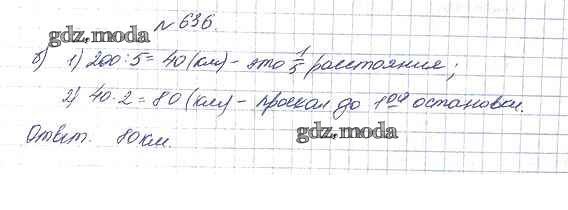 № 636.
gdz.moda
б) 1) 200 : 5 = 40 (км) - это 1/5 расстояния;
2) 40 · 2 = 80 (км) - проехал до 1ой остановки.
gdz.moda
Ответ. 80 км.